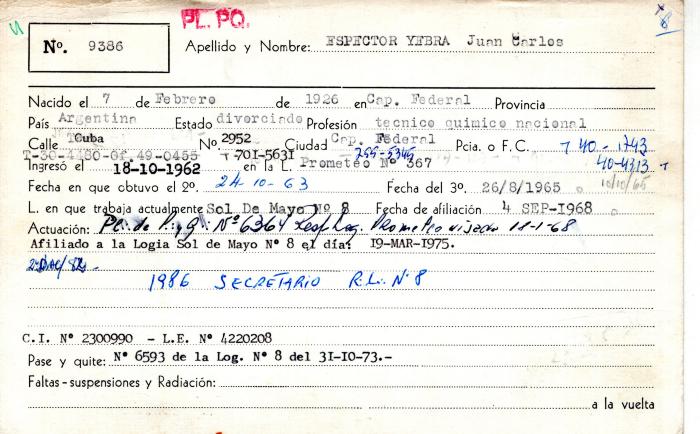 PL. PQ.
Nº. 9386
Apellido y Nombre: ESPECTOR YEBRA Juan Carlos
Nacido el 7 de Febrero de 1926 en Cap. Federal Provincia
País Argentina Estado divorciado Profesión tecnico quimico nacional
Calle Cuba Nº. 2952 Ciudad Cap. Federal Pcia. o F. C. T 40-1743
T-30-4480-Of.49-0455 T 701-5631 755-5345 40-4313 T
Ingresó el 18-10-1962 en la L. Prometeo Nº 367
Fecha en que obtuvo el 2º. 24-10-63 Fecha del 3º. 26/8/1965 10/10/65
L. en que trabaja actualmente Sol De Mayo Nº 8 Fecha de afiliación 4 SEP-1968
Actuación: Pl. de P. y Q. Nº 6364 Resp. Log. Prometeo 18-1-68
Afiliado a la Logia Sol de Mayo Nº 8 el día: I9-MAR-I975.
1986 SECRETARIO R.L. Nº 8
C.I. Nº 2300990 - L.E. Nº 4220208
Pase y quite: Nº 6593 de la Log. Nº 8 del 3I-IO-73.-
Faltas-suspensiones y Radiación:
a la vuelta